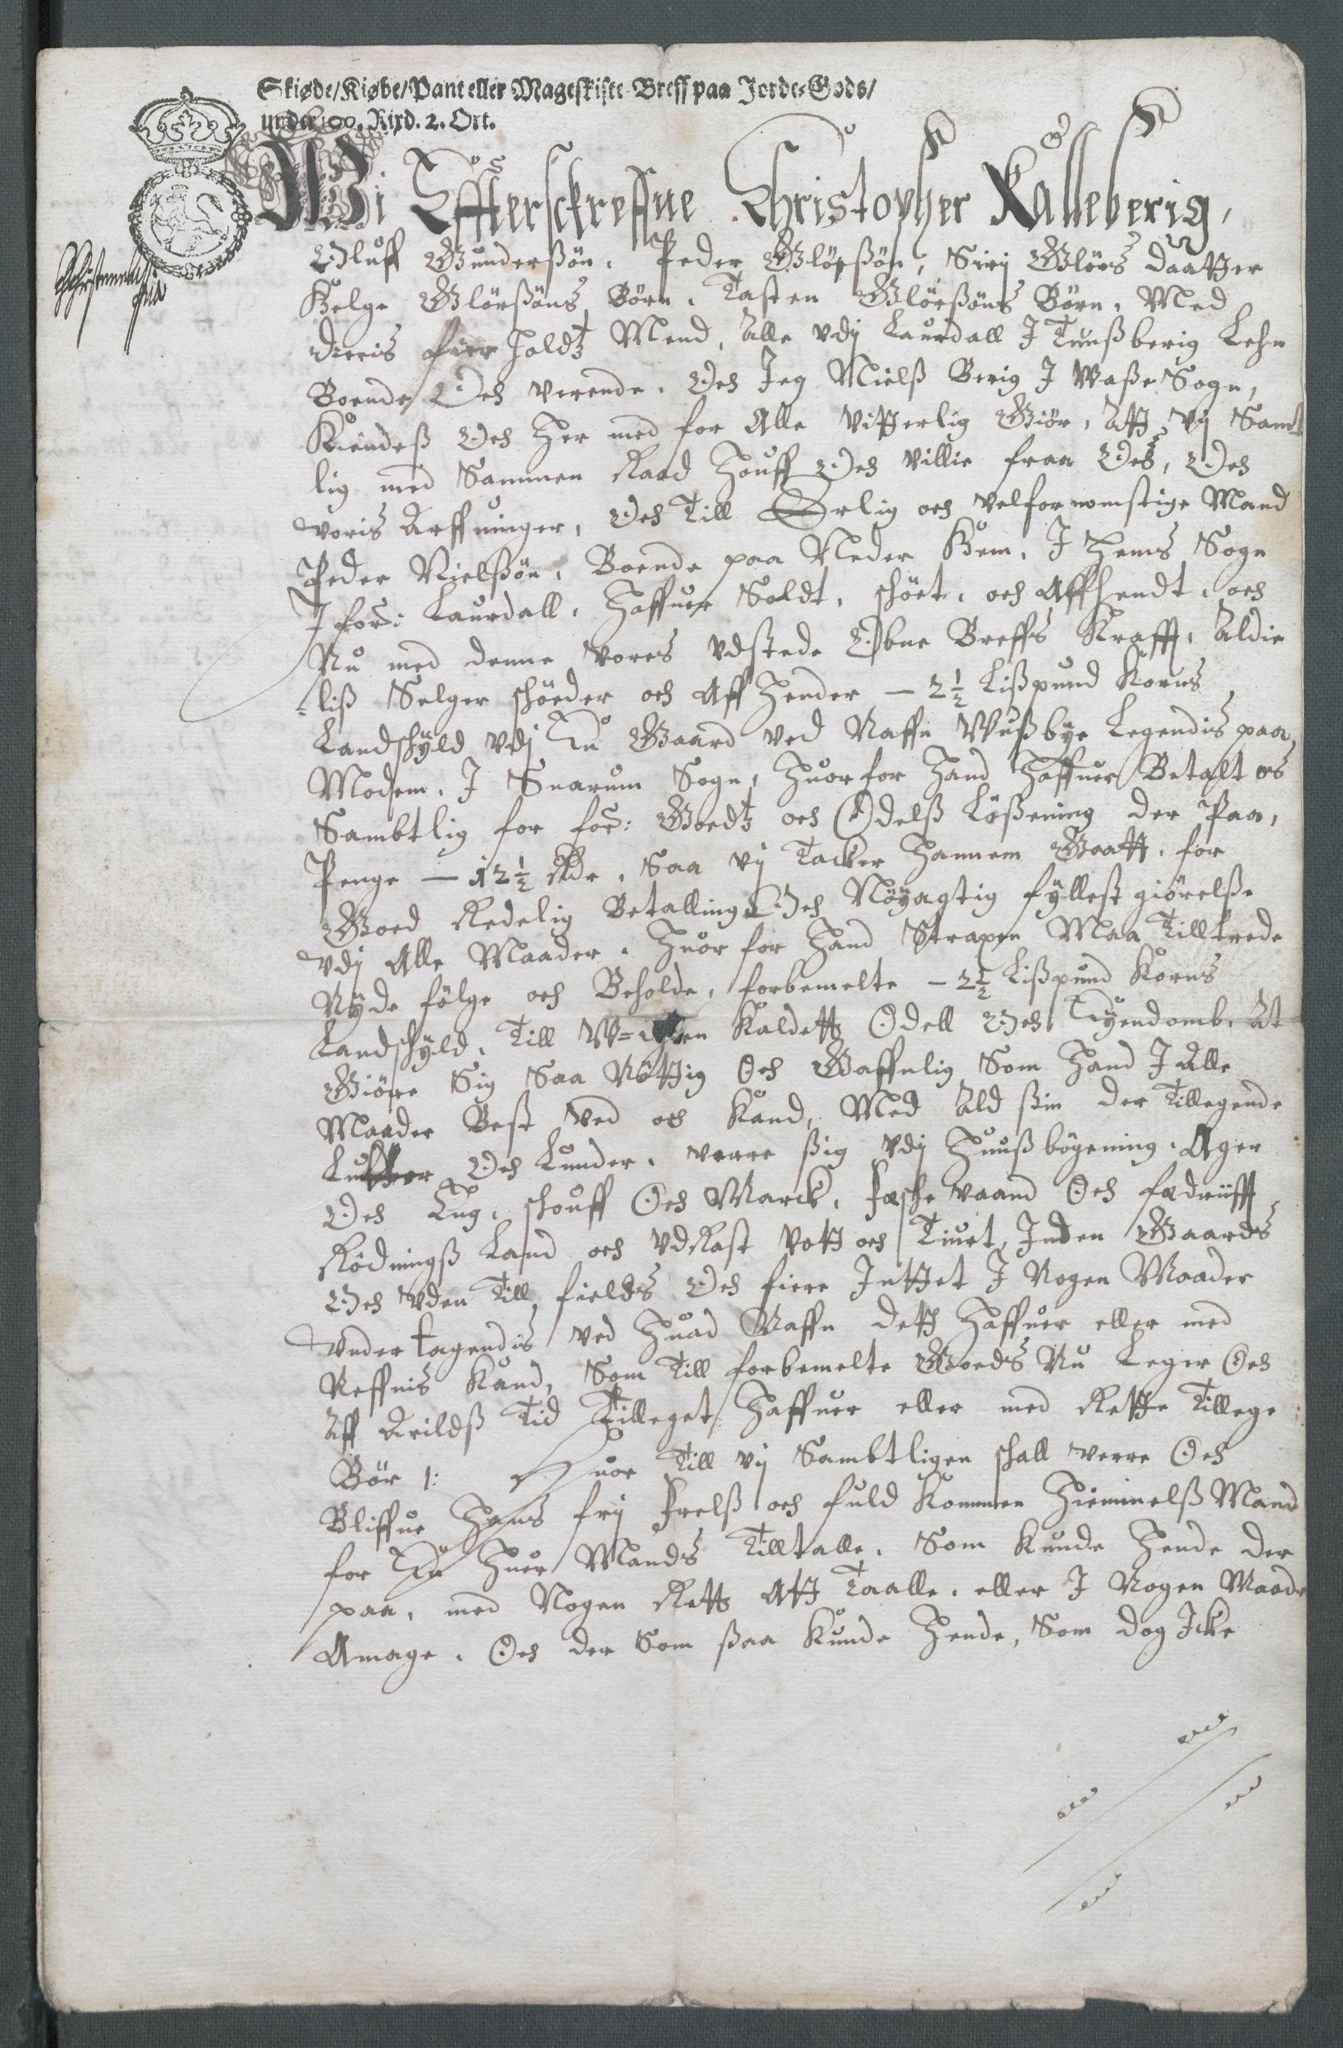 Skiøde/Kiøbe/Pant eller Mageskiste-Breff paa Jorde-Gods/
under 100. Rixd. 2. Ort.
Wi Effterschreffne Christopher Kalleberig,
Oluff Gunderßön, Peder Glörßön, Sirj Glörs daatter
Helge Glörßöns Börn, Tasten Glörßöns Börn, Med
dieris Mend, Alle vdj Laurdall J Tunßberig Lehn
Boende Och verende. Och Jeg Nielß Berig J Waße Sogn,
Kiendeß Och her med for Alle vitterlig Giör, Att vj Samt
lig med Sammen Raad Houff Och villie fraa Oeß, Och
voris Arffvinger, Och Till Erlig och velfornomstige Mand
Peder Nielßön, Boende paa Neder Hem, J Hems Sogn
J for: Laurdall, Haffuer Soldt, schöet, och Affhendt, och
Nu med denne vores vdstede Obne Breffs Krafft, Aldie
liß Selger schöeder och Aff Hender - 2½ Lißpund Korns
Landschyld vdj En Gaard ved Naffn Wußbye Legendis paa
Modem, J Snarum Sogn, Huorfor Hand Haffuer Betalt os
Sambtlig for for: Goedtz och Odelß Lößening der Paa,
Penge - 12½ Rdr, Saa vj Tacker Hannem Gaatt, for
Goed Redelig Betalling Och Nöyagtig fyllest giörelße
vdj Alle Maader. Huor for Hand Straxen Maa Tilltrede
Nyde fölge och Beholde, forbemelte - 2½ Lißpund Korns
Landschyld, Till Kaldett Odell Och Eyendomb, At
Giöre Sig Saa Nöttig Och Gaffnlig Som Hand J Alle
Maader Best ved och Kand, Med Ald ßin der Tillegende
Och Lunder, verre ßig vdj Huußbögening, Ager
Och Eng, schouff Och Marck, Fische vaand Och fædrifft,
Rödningß Land och vdRast vott och Tiurt, Inden Gaards
Och vden Till, fields Och fiere Inttet J Nogen Maader
vndertagendis ved Huad Naffn dett Haffuer eller med
Neffnis Kand, Som Till forbemelte Goeds Nu Leger Och
Aff Arildß Tid Tilleget Haffuer eller med Rette Tillege
Bör 1: Huor Till vj Sambtligen schall verre Och
Bliffue Hans frj Frelß och fuld Kommen Hiemmelß Mand
for En Huer Mands Tilltalle, Som Kunde Hende der
paa, med Nogen Rett Att Taalle, eller J Nogen Maade
Amage. Och der Som ßaa Kunde Hende, Som dog Icke